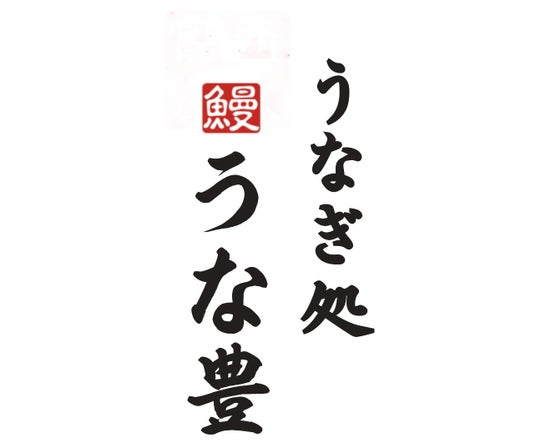 うなぎ処
鰻
うな豊